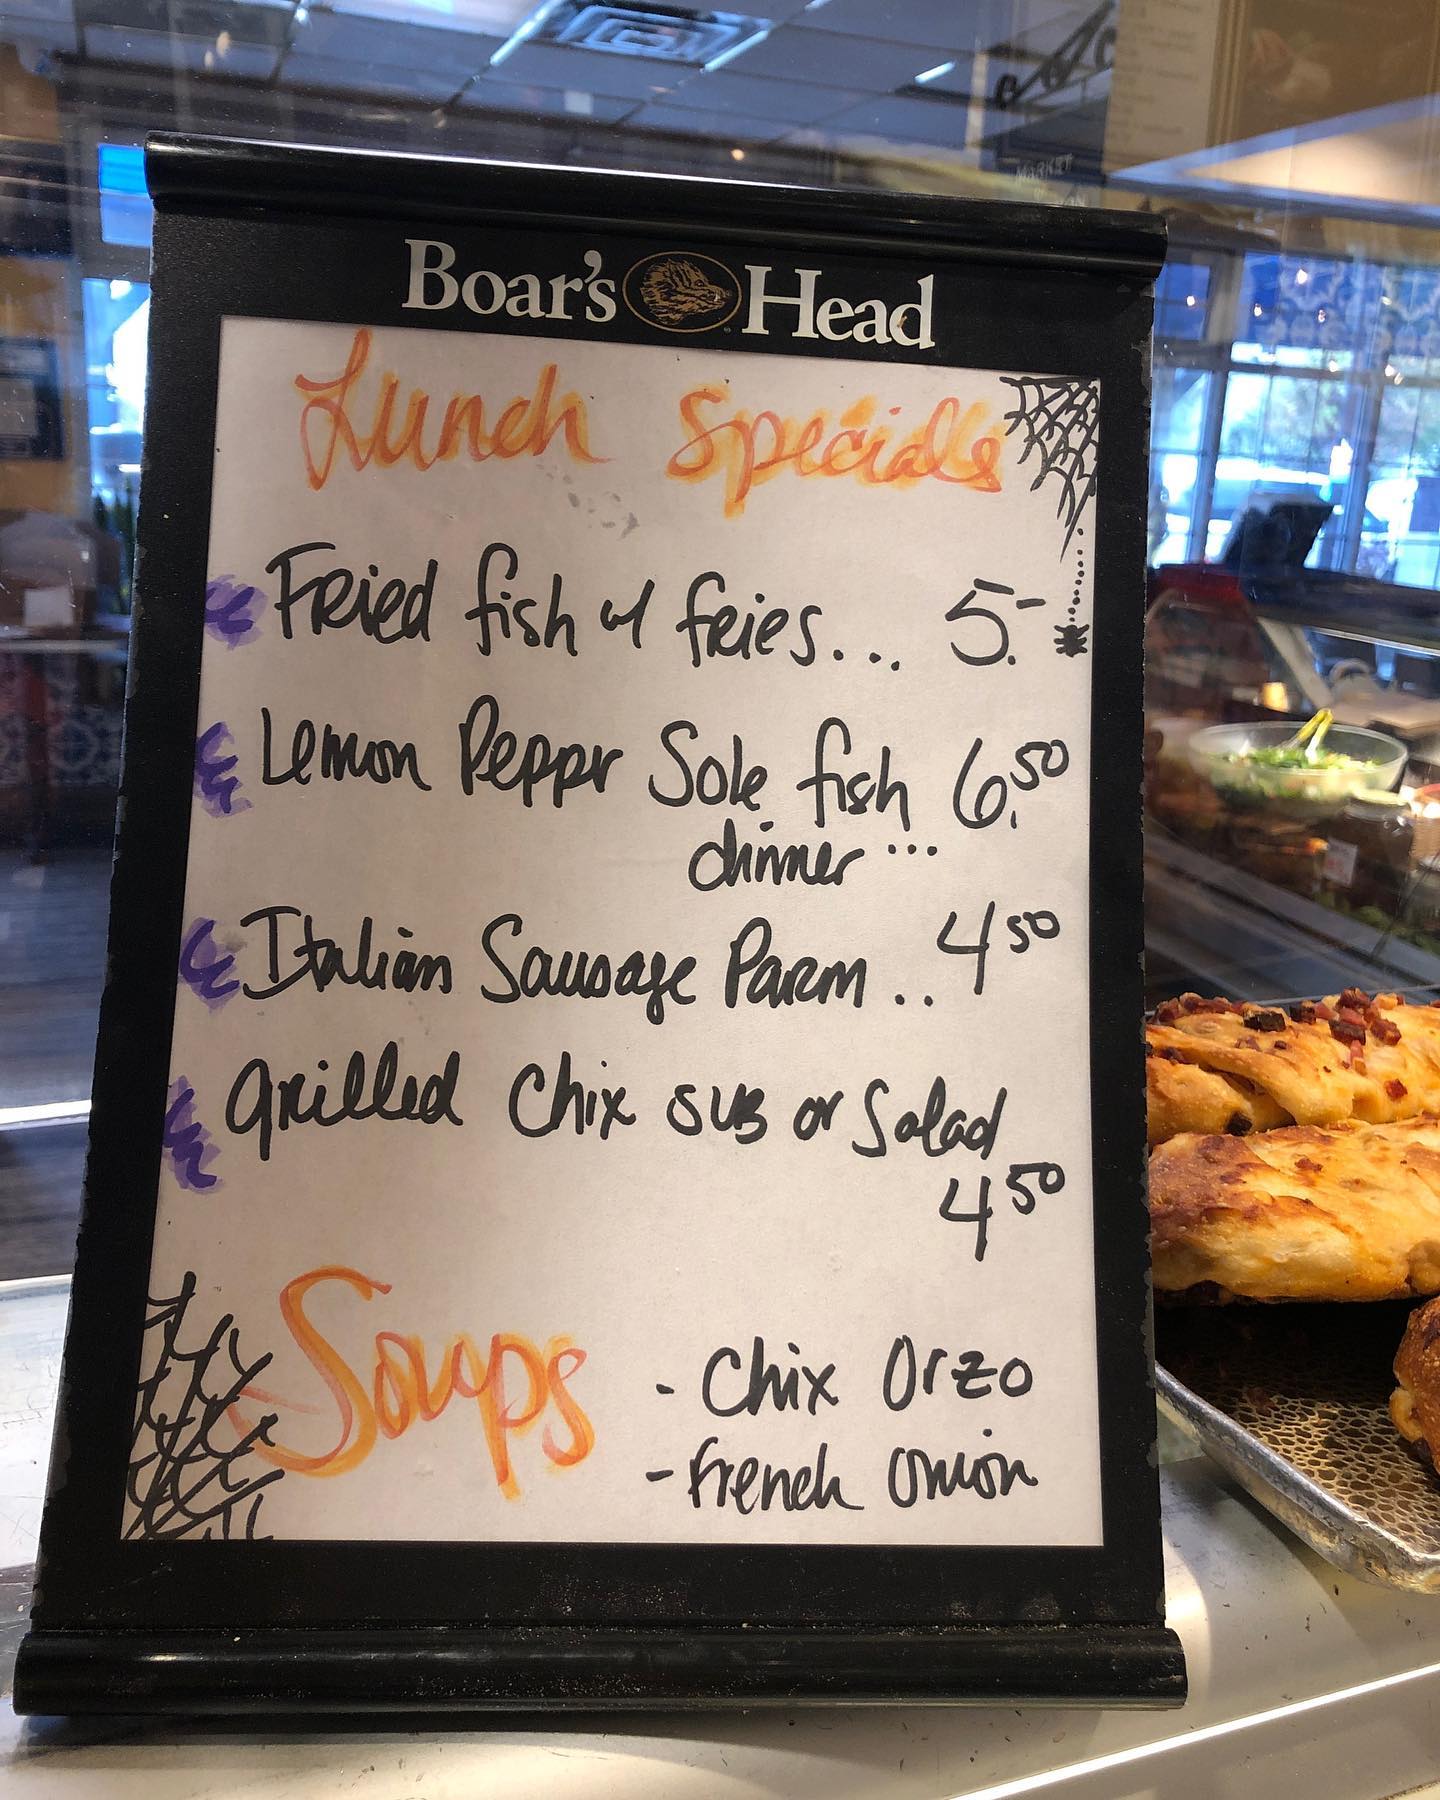 MARKET
Boar's Head
Lunch Specials
Fried fish w/ fries... 5.-
Lemon Peppr Sole fish 6.50
dinner ...
Italian Sausage Parm .. 4 50
Grilled Chix sub or Salad
4 50
Soups
- Chix Orzo
- French Onion